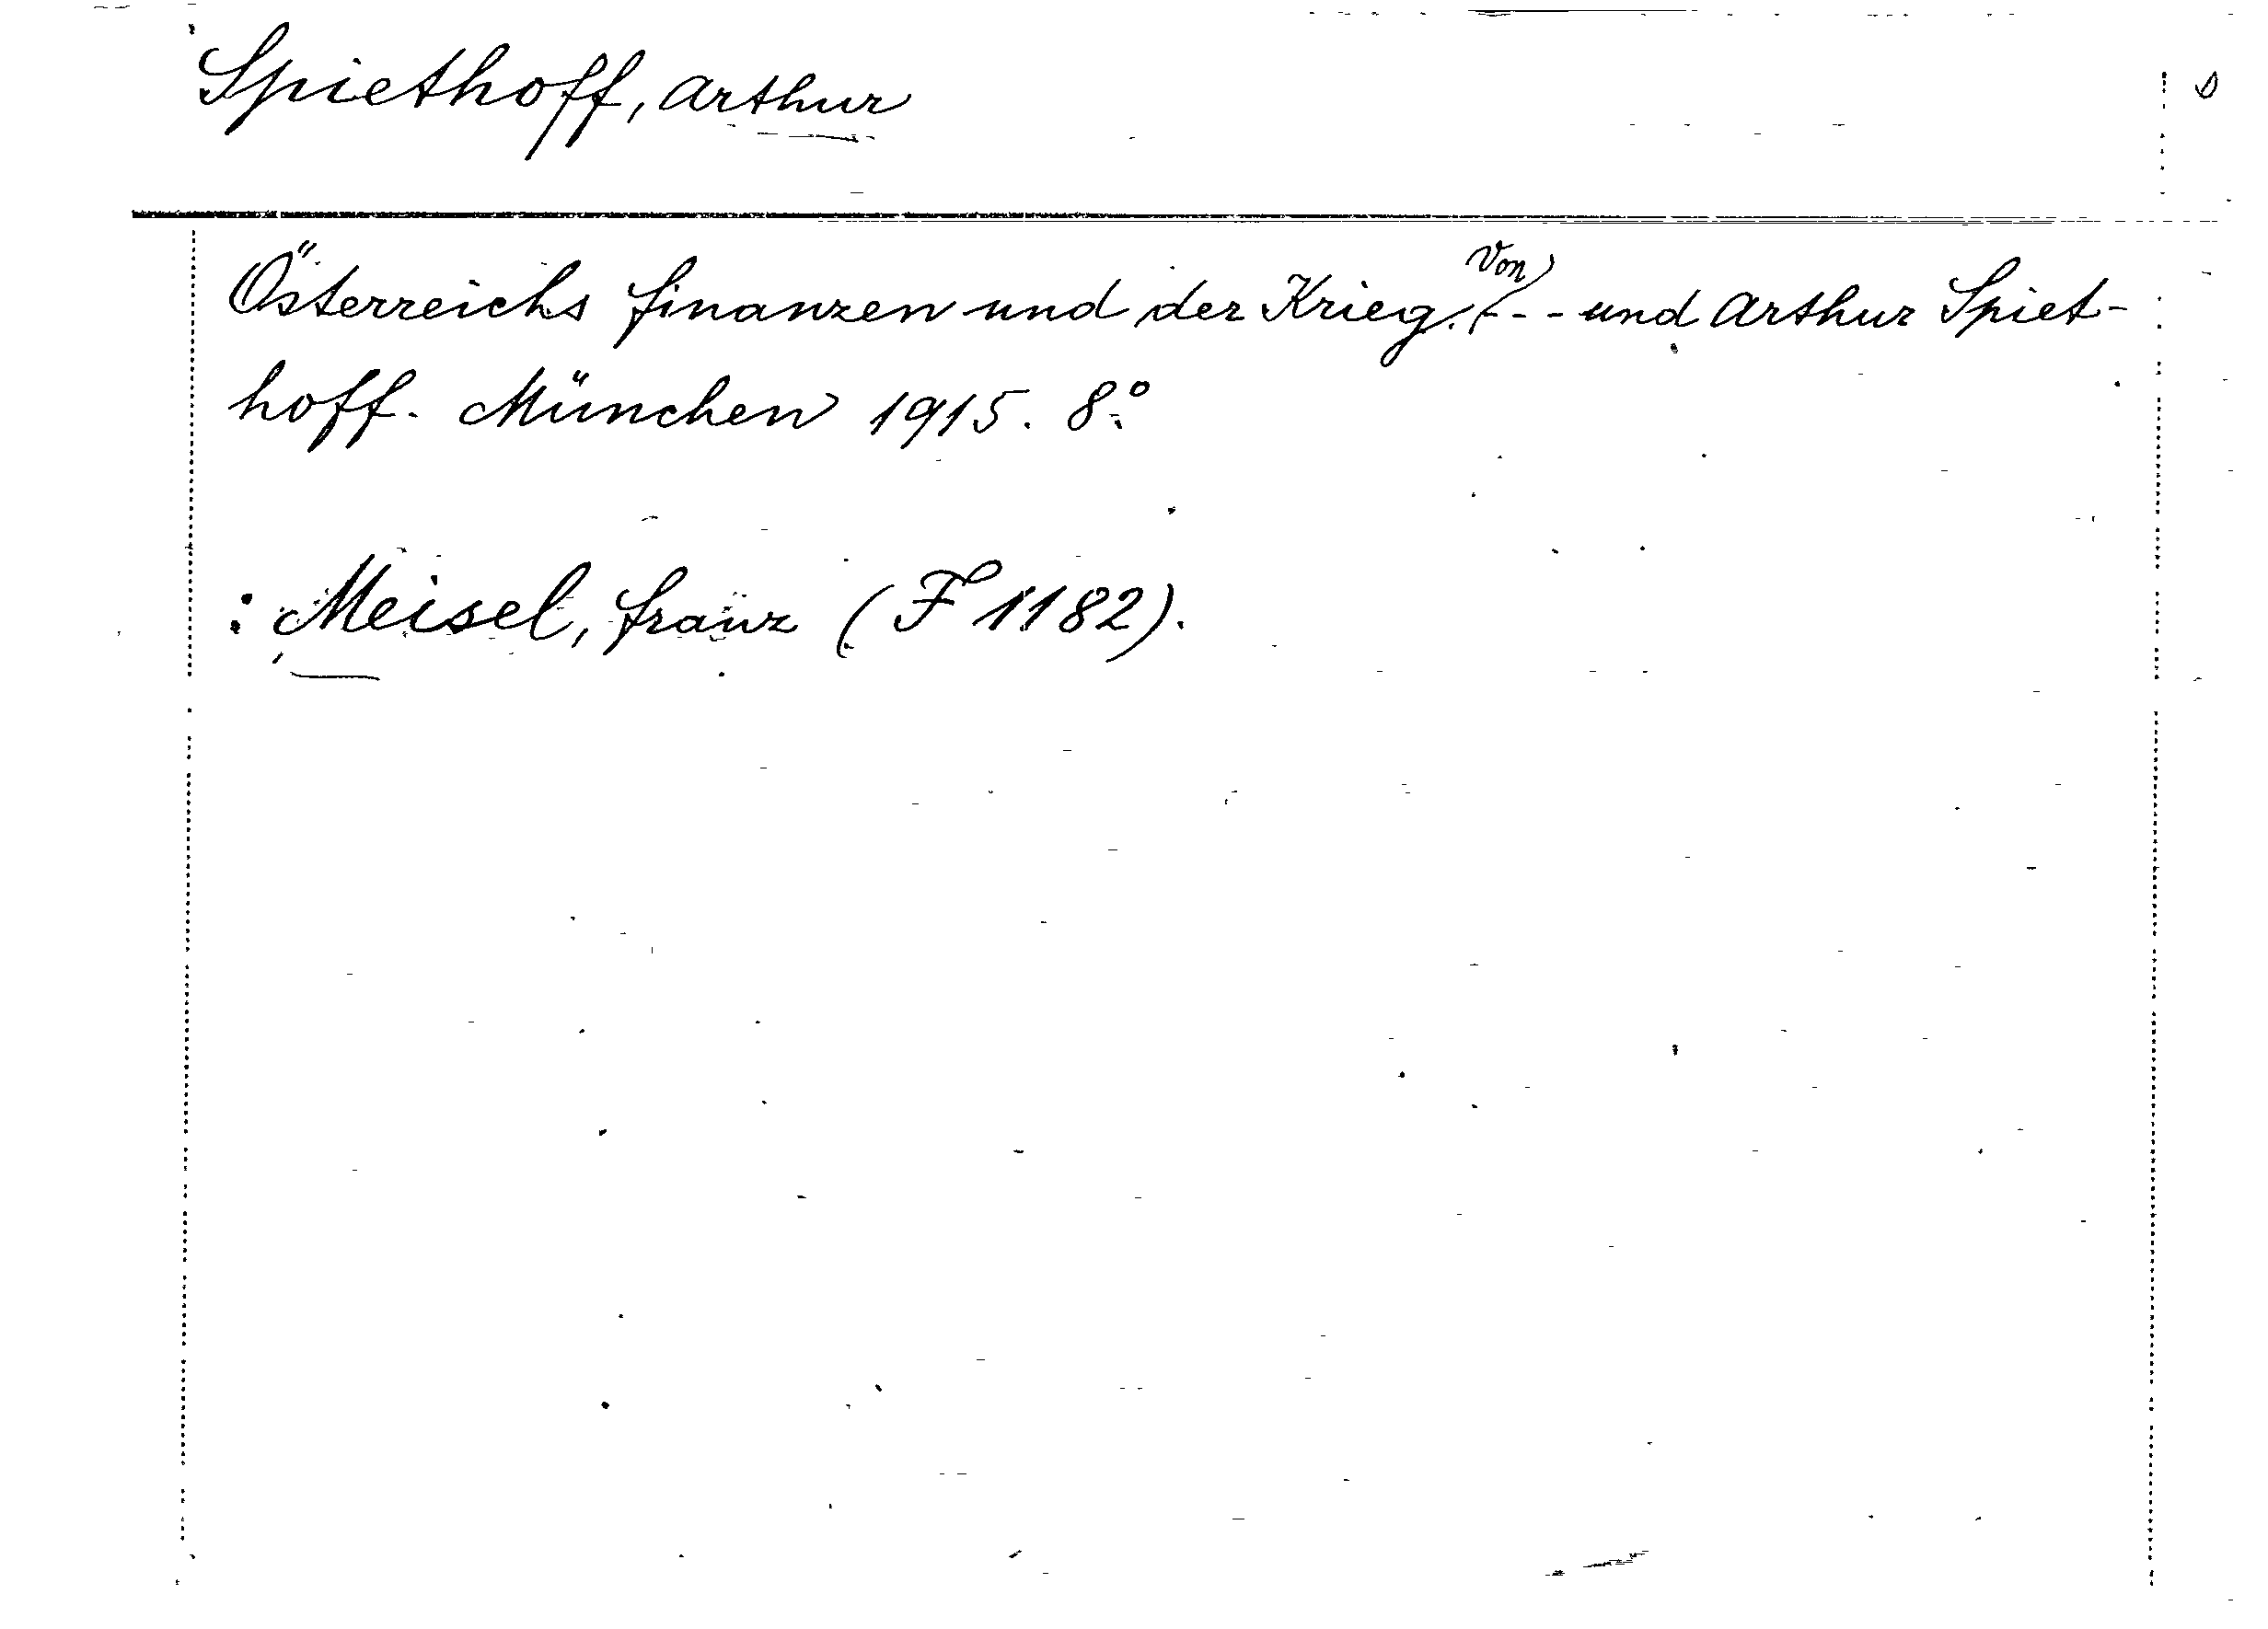 Spiethoff, Arthur
Österreichs Finanzen und der Krieg. Von --- und Arthur Spiet-
hoff. München 1915. 8°.
: Meisel, Franz (F 1182).